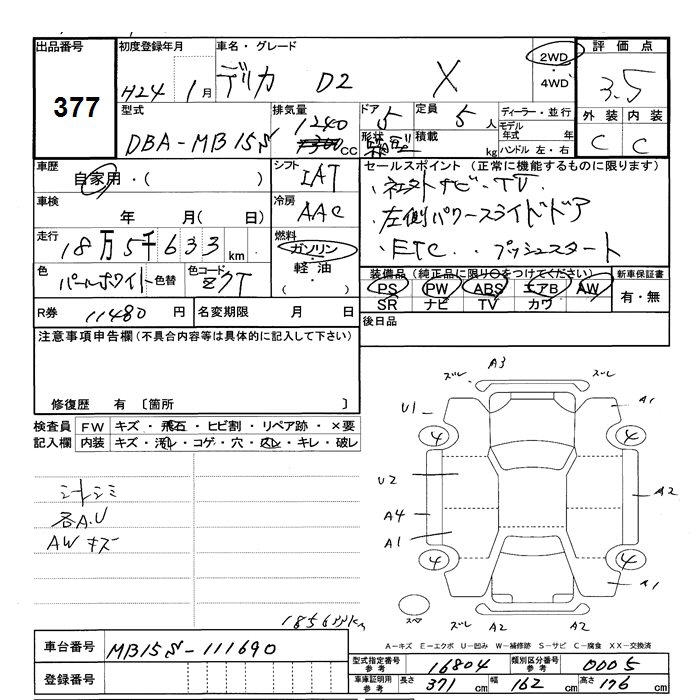 出品番号
377
初度登録年月
H24 1月
車名・グレード
デリカ D2 X
2WD
・
4WD
評価点
3.5
外装 内装
C C
型式
DBA-MB15S
排気量
1240
1300 CC
ドア 5
形状
定員 5 人
積載 kg
ディーラー・並行
モデル年式 年
ハンドル 左・右
車歴
自家用・( )
シフト
IAT
車検
年 月(日)
冷房
AAC
走行
18万5千633km
燃料
ガソリン
・
軽油
( ・ )
色
パールホワイト
色替
色コード
ZCT
セールスポイント (正常に機能するものに限ります)
・社外ナビ・TV
・左側パワースライドドア
・ETC・・プッシュスタート
装備品(純正品に限り○をつけてください)
PS PW ABS エアB AW
SR ナビ TV カワ
新車保証書
有・無
R券 11480 円
名変期限 月 日
後日品
注意事項申告欄(不具合内容等は具体的に記入して下さい)
修復歴 有 〔箇所 〕
検査員 FW キズ・飛石・ヒビ割・リペア跡・×要
記入欄 内装 キズ・汚れ・コゲ・穴・凹ミ・キレ・破レ
シートシミ
各A.U
AW キズ
185633km
ズレ A3 ズレ
U1 A1
4 4
U2
A2
A4
A1
4 4
A1
スペ
ズレ A2 A2 ズレ
A-キズ E-エクボ U-凹み W-補修跡 S-サビ C-腐食 XX-交換済
車台番号 MB15S-111690
登録番号
型式指定番号 参考 16804
類別区分番号 参考 0005
車庫証明用 参考 長さ 371 cm 幅 162 cm 高さ 176 cm